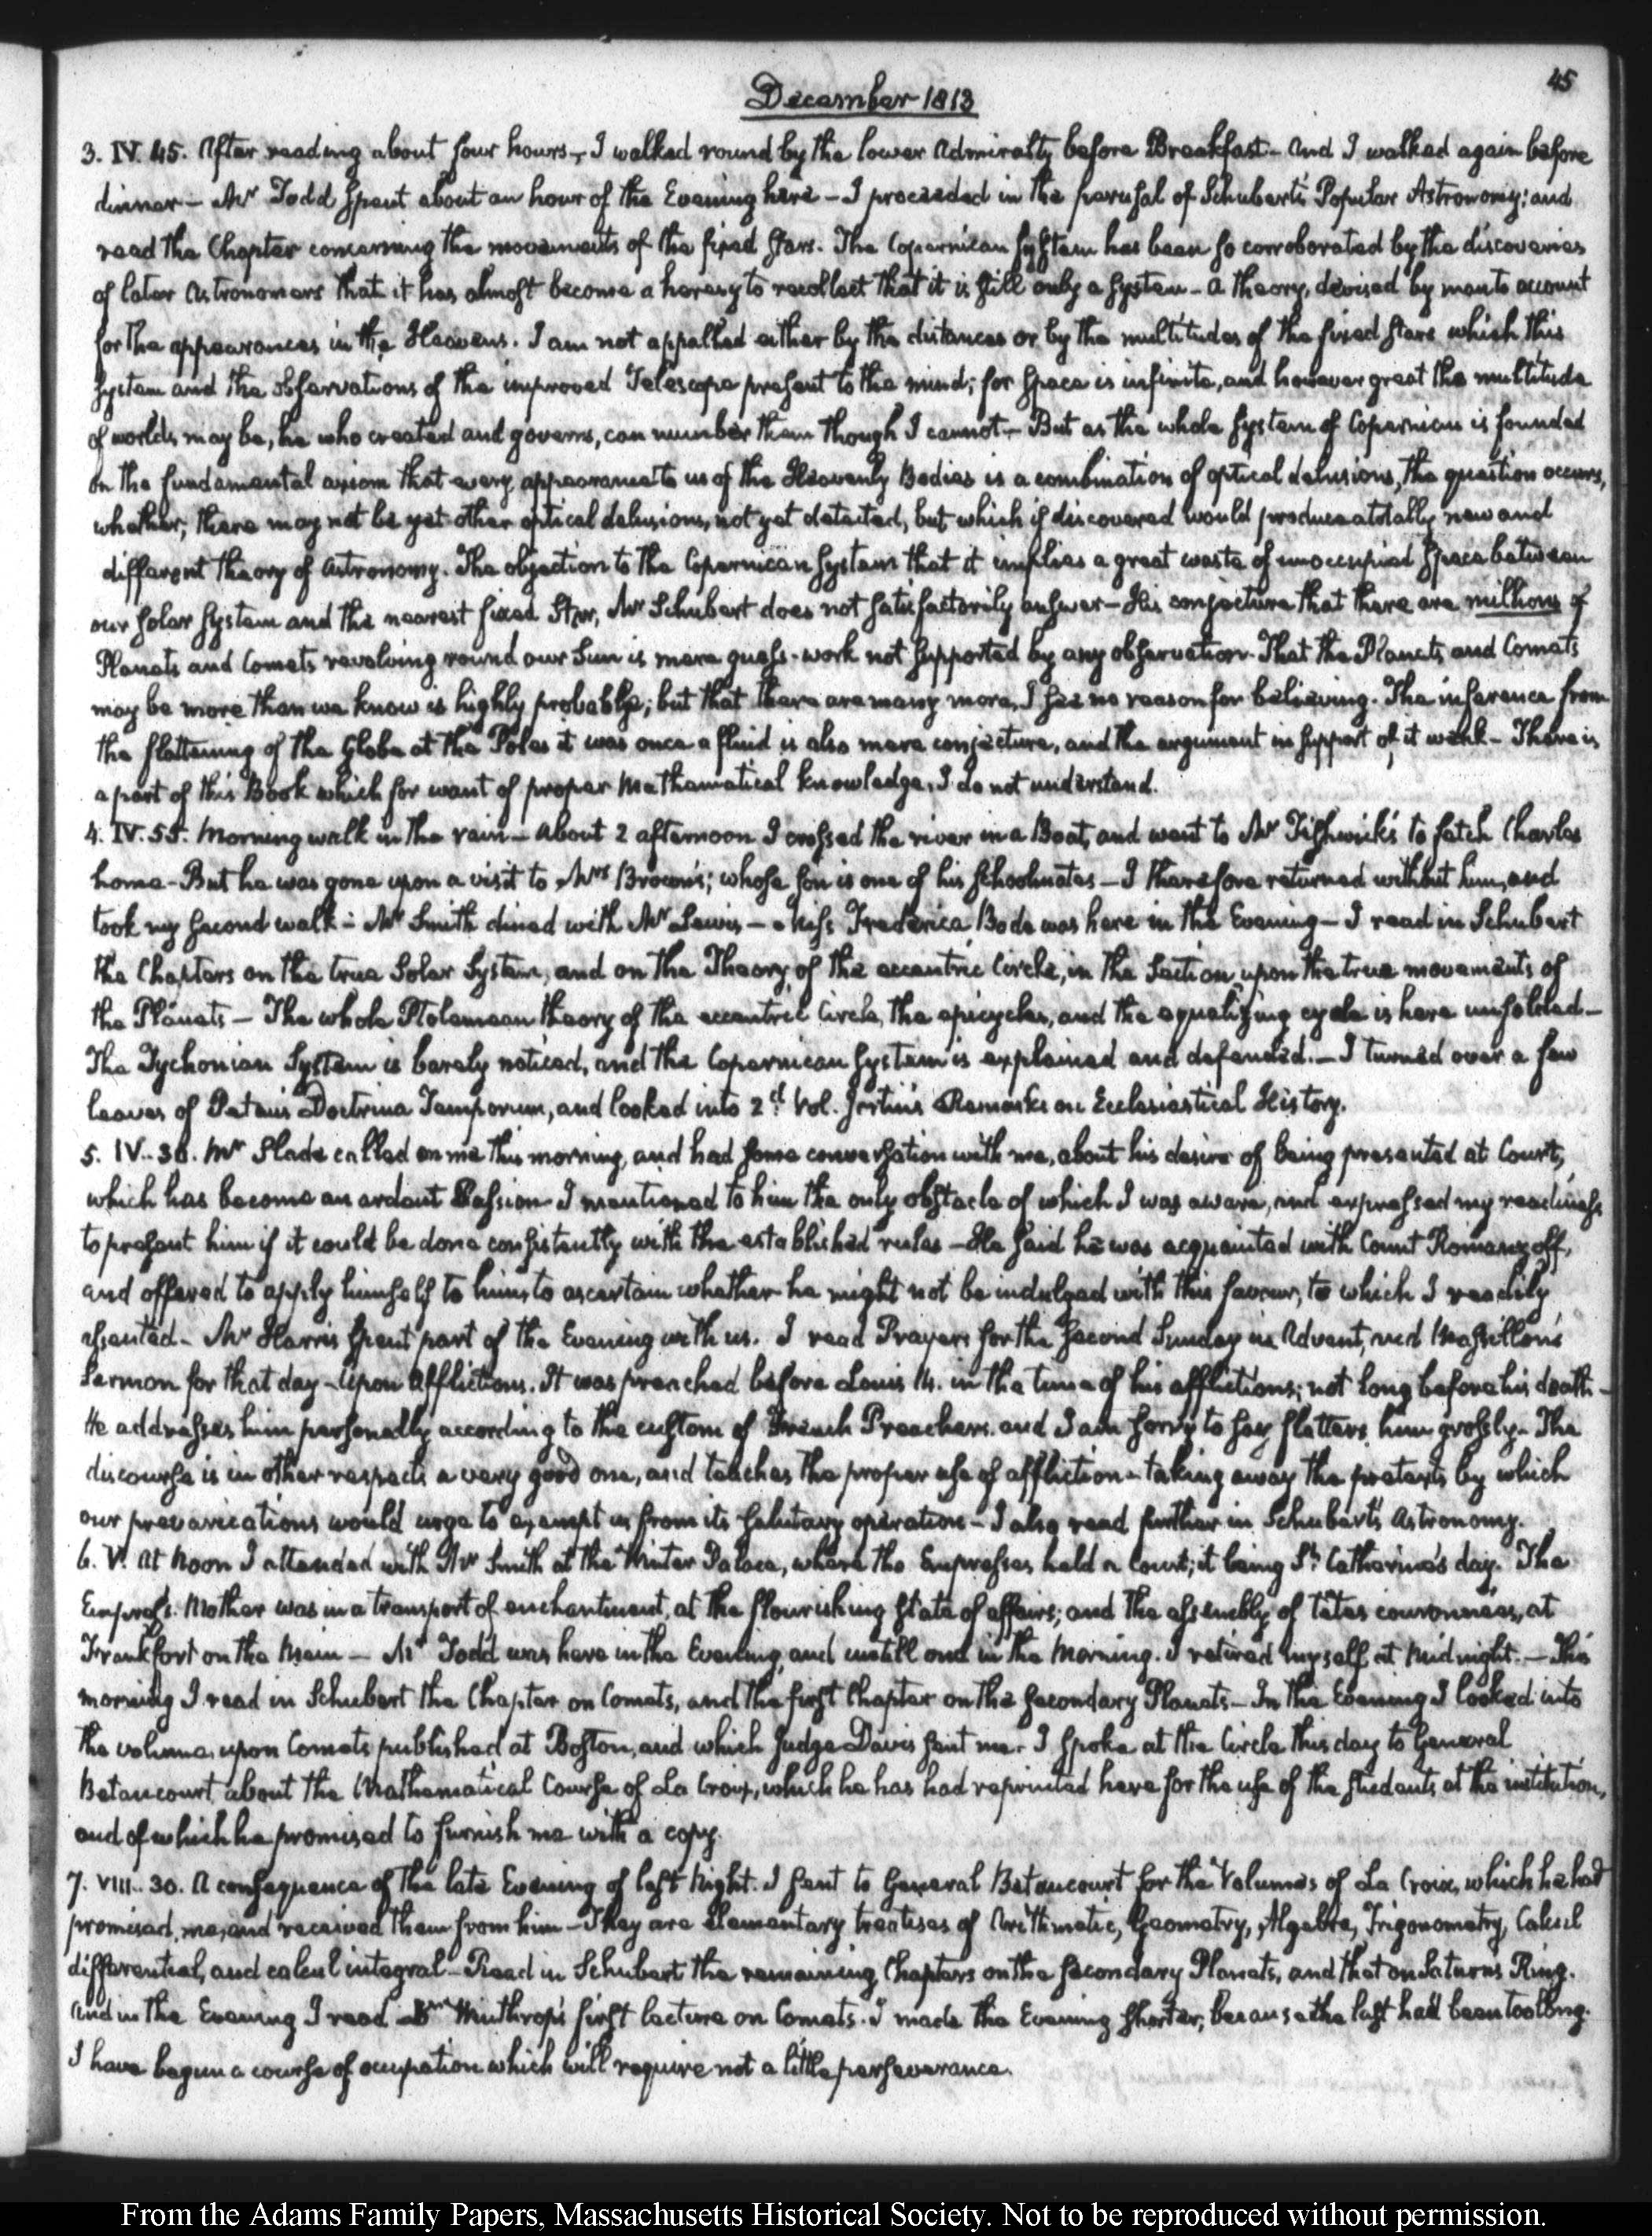 45
December 1813
3. IV. 45. After reading about four hours, I walked round by the lower Admiralty before Breakfast — And I walked again before
dinner — Mr Todd spent about an hour of the Evening here — I proceeded in the perusal of Schubert's Popular Astronomy; and
read the Chapter concerning the movements of the fixed stars. The Copernican system has been so corroborated by the discoveries
of later Astronomers that it has almost become a heresy to recollect that it is still only a system — a theory, devised by man to account
for the appearances in the Heavens. I am not appalled either by the distances or by the multitudes of the fixed stars which this
system and the observations of the improved Telescope present to the mind; for space is infinite, and however great the multitude
of worlds may be, he who created and governs, can number them though I cannot — But as the whole system of Copernicus is founded
on the fundamental axiom that every appearance to us of the Heavenly Bodies is a combination of optical delusions, the question occurs,
whether, there may not be yet other optical delusions, not yet detected, but which if discovered would produce a totally new and
different theory of Astronomy. The objection to the Copernican system that it implies a great waste of unoccupied space between
our solar system and the nearest fixed Star, Mr Schubert does not satisfactorily answer — His conjecture that there are millions of
Planets and Comets revolving round our Sun is mere guess-work not supported by any observation. That the Planets and Comets
may be more than we know is highly probable; but that there are many more, I see no reason for believing. The inference from
the flattening of the Globe at the Poles it was once a fluid is also mere conjecture, and the argument in support of it weak — There is
a part of this Book which for want of proper Mathematical knowledge, I do not understand.
4. IV. 55. Morning walk in the rain — About 2 afternoon I crossed the river in a Boat, and went to Mr Fishwick's to fetch Charles
home — But he was gone upon a visit to Mrs Brown's; whose son is one of his schoolmates — I therefore returned without him, and
took my second walk — Mr Smith dined with Mr Lewis — Miss Frederica Bode was here in the Evening — I read in Schubert
the Chapters on the true Solar System, and on the Theory of the eccentric Circle, in the Section upon the true movements of
the Planets — The whole Ptolemean theory of the eccentric Circle, the epicycles, and the equalizing cycle is here unfolded —
The Tychonian System is barely noticed, and the Copernican system is explained and defended. — I turned over a few
leaves of Petau's Doctrina Temporum, and looked into 2d. Vol. Jortin's Remarks on Ecclesiastical History.
5. IV. 30. Mr Slade called on me this morning, and had some conversation with me, about his desire of being presented at Court,
which has become an ardent Passion — I mentioned to him the only obstacle of which I was aware, and expressed my readiness
to present him if it could be done consistently with the established rules — He said he was acquainted with Count Romanzoff,
and offered to apply himself to him, to ascertain whether he might not be indulged with this favour, to which I readily
assented — Mr Harris spent part of the Evening with us. I read Prayers for the second Sunday in Advent, and Massillon's
Sermon for that day — Upon Afflictions. It was preached before Louis 14. in the time of his afflictions; not long before his death —
He addresses him personally according to the custom of French Preachers, and I am sorry to say flatters him grossly — The
discourse is in other respects a very good one, and teaches the proper use of affliction — taking away the pretexts by which
our prevarications would urge to exempt us from its salutary operation — I also read further in Schubert's Astronomy.
6. V. At Noon I attended with Mr Smith at the Winter Palace, where the Empresses held a Court; it being St. Catherine's day. The
Empress Mother was in a transport of enchantment, at the flourishing state of affairs; and the assembly of têtes couronnées, at
Frankfort on the Mein — Mr Todd was here in the Evening, and untill one in the Morning. I retired myself at Midnight. — This
morning I read in Schubert the Chapter on Comets, and the first Chapter on the secondary Planets — In the Evening I looked into
the volume, upon Comets published at Boston, and which Judge Davis sent me. I spoke at the Circle this day to General
Betancourt about the Mathematical Course of La Croix, which he has had reprinted here for the use of the students at the institution,
and of which he promised to furnish me with a copy.
7. VIII. 30. A consequence of the late Evening of last Night. I sent to General Betancourt for the Volumes of La Croix, which he had
promised me, and received them from him — They are elementary treatises of Arithmetic, Geometry, Algebra, Trigonometry, Calcul
differential, and calcul integral — Read in Schubert the remaining Chapters on the secondary Planets, and that on Saturn's Ring.
And in the Evening I read Winthrop's first lecture on Comets. I made the Evening shorter, because the last had been too long.
I have begun a course of occupation which will require not a little perseverance.
From the Adams Family Papers, Massachusetts Historical Society. Not to be reproduced without permission.